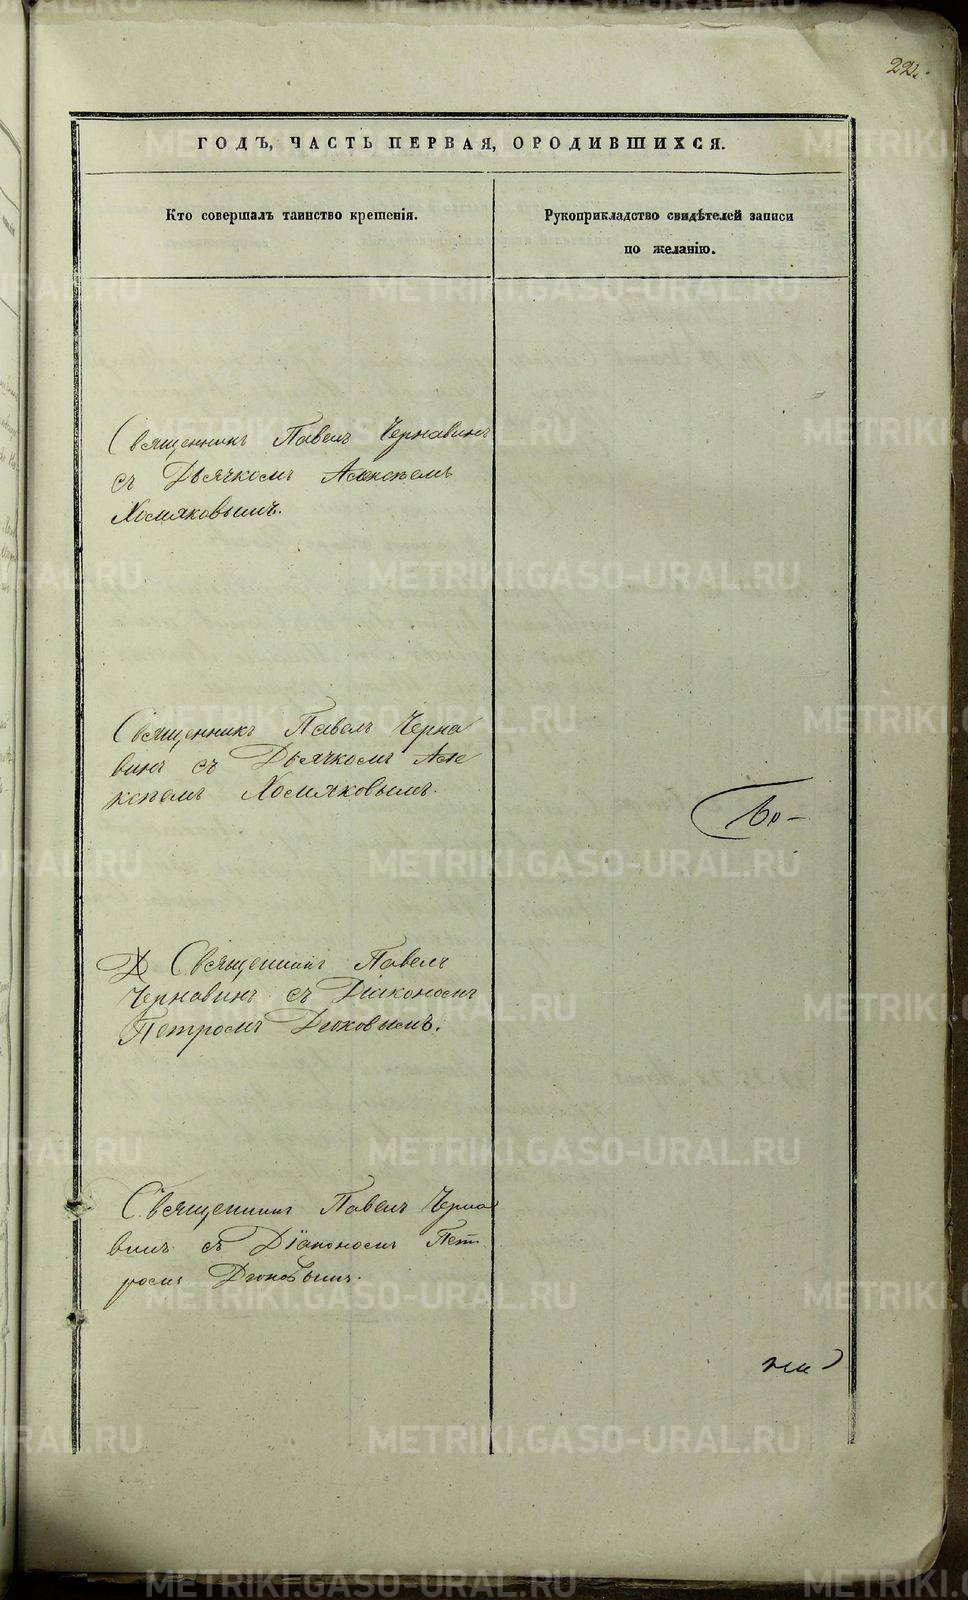 22.
ГОДЪ, ЧАСТЬ ПЕРВАЯ, О РОДИВШИХСЯ.
Кто совершалъ таинство крещенія.
Рукоприкладство свидѣтелей записи
по желанію.
Священникъ Павелъ Чернавинъ
съ Дьячкомъ Алексѣемъ
Хомяковымъ.
Священникъ Павелъ Черна
винъ съ Дьячкомъ Але
ксѣемъ Хомяковымъ.
Священникъ Павелъ
Чернавинъ съ Діакономъ
Петромъ Дюковымъ.
Священникъ Павелъ Черна
винъ съ Діакономъ Пет
ромъ Дюковымъ.
METRIKI.GASO-URAL.RU